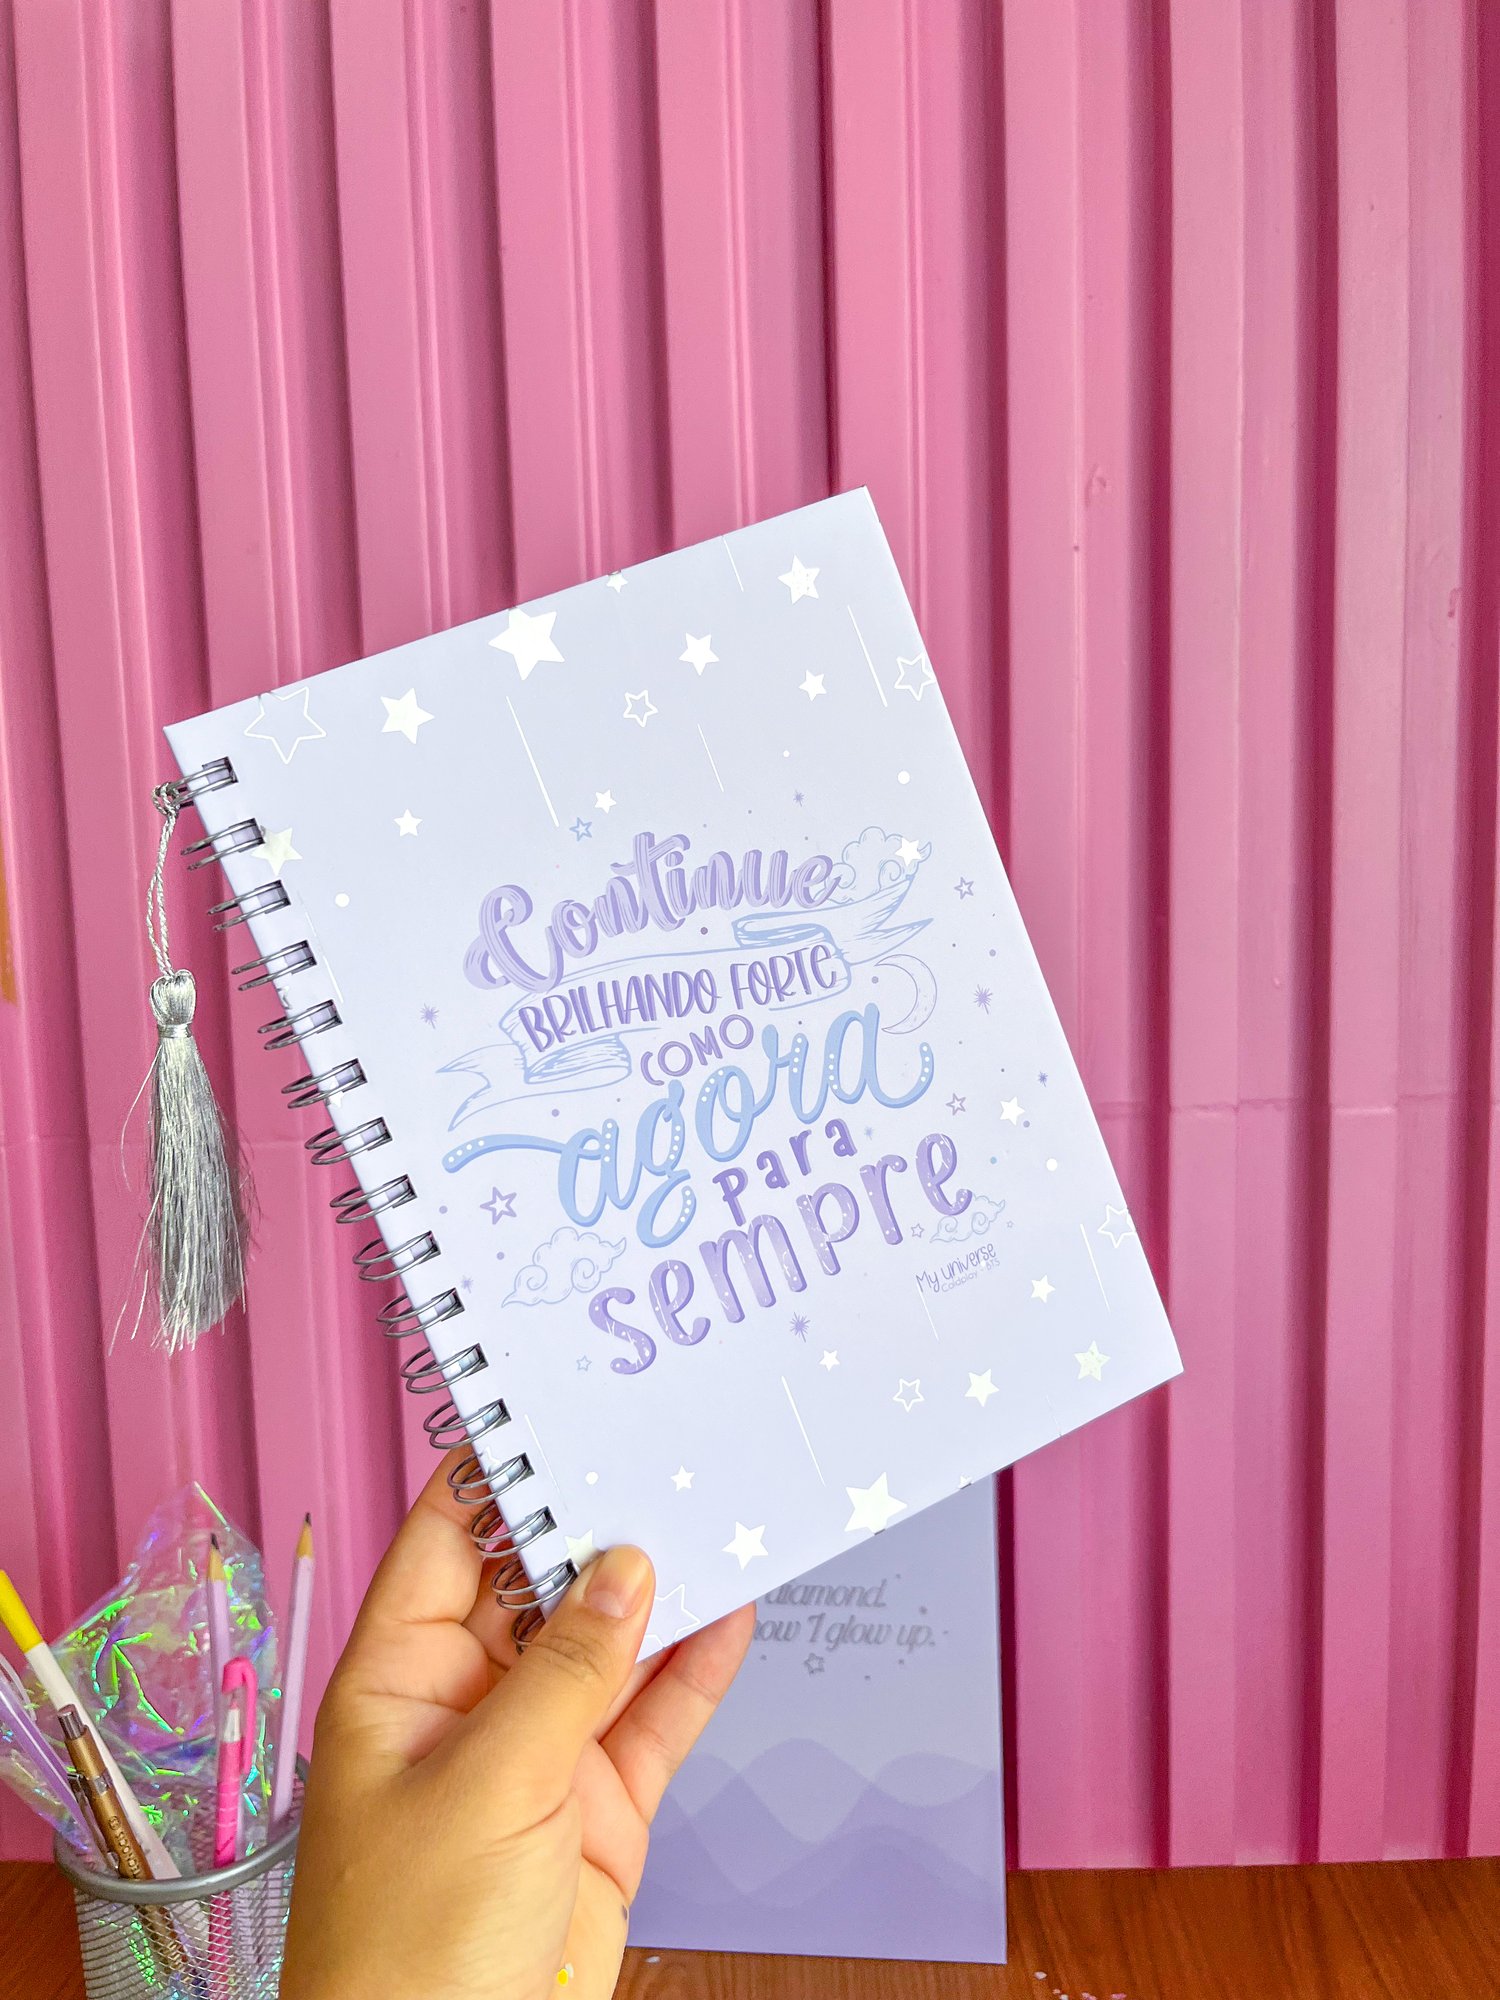 Continue
BRILHANDO FORTE
COMO
agora
para
sempre
My universe
Coldplay - BTS
diamond.
now I glow up.